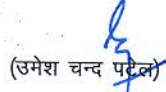 (उमेश चन्द पटेल)